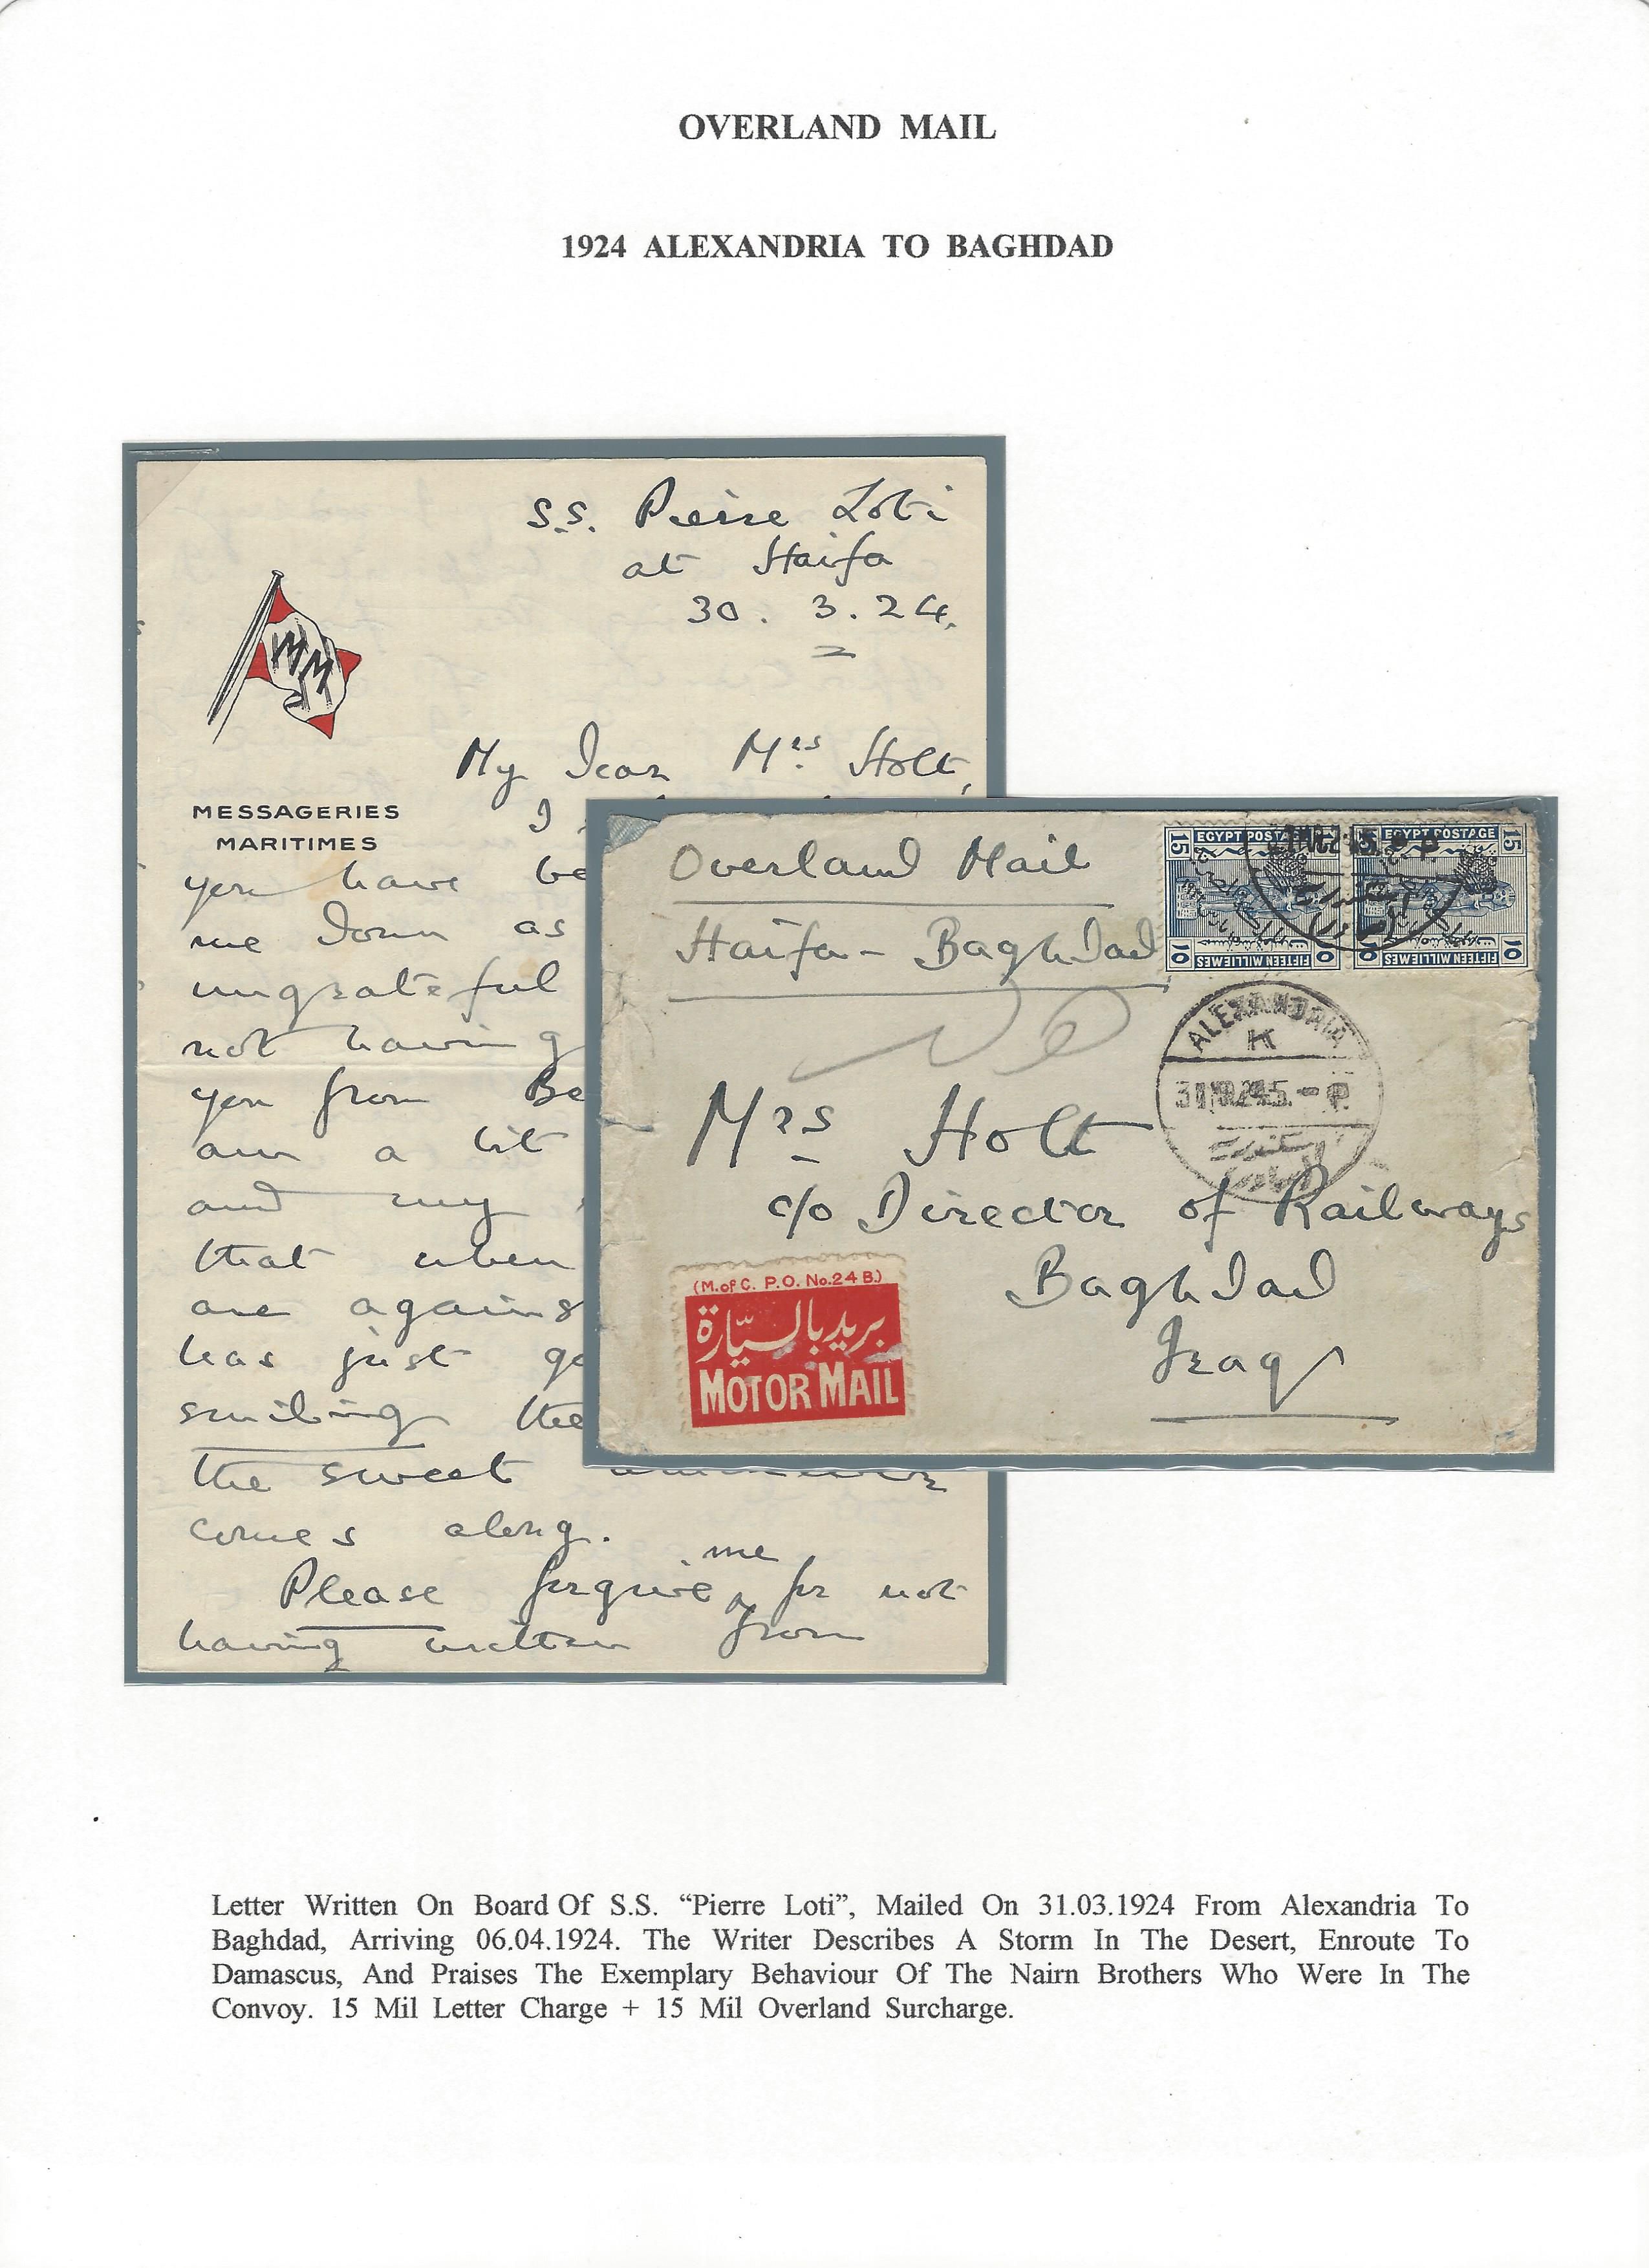 OVERLAND MAIL
1924 ALEXANDRIA TO BAGHDAD
S.S. Pierre Loti
at Haifa
30. 3. 24.
MM
MESSAGERIES
MARITIMES
My Dear Mrs Holt,
I
you have be
me down as
ungrateful
not having
you from Be
am a bit
and my
that when
are agains
has just go
smiling the
the sweet
comes along.
Please forgive me for not
having written from
Overland Mail
Haifa - Baghdad
EGYPT POSTAGE
15
10
FIFTEEN MILLIEMES
EGYPT POSTAGE
15
10
FIFTEEN MILLIEMES
ALEXANDRIA
K
Mrs Holt
c/o Director of Railways
Baghdad
Iraq
(M. of C. P.O. No. 24 B.)
بريد بالسيّارة
MOTOR MAIL
Letter Written On Board Of S.S. “Pierre Loti”, Mailed On 31.03.1924 From Alexandria To
Baghdad, Arriving 06.04.1924. The Writer Describes A Storm In The Desert, Enroute To
Damascus, And Praises The Exemplary Behaviour Of The Nairn Brothers Who Were In The
Convoy. 15 Mil Letter Charge + 15 Mil Overland Surcharge.